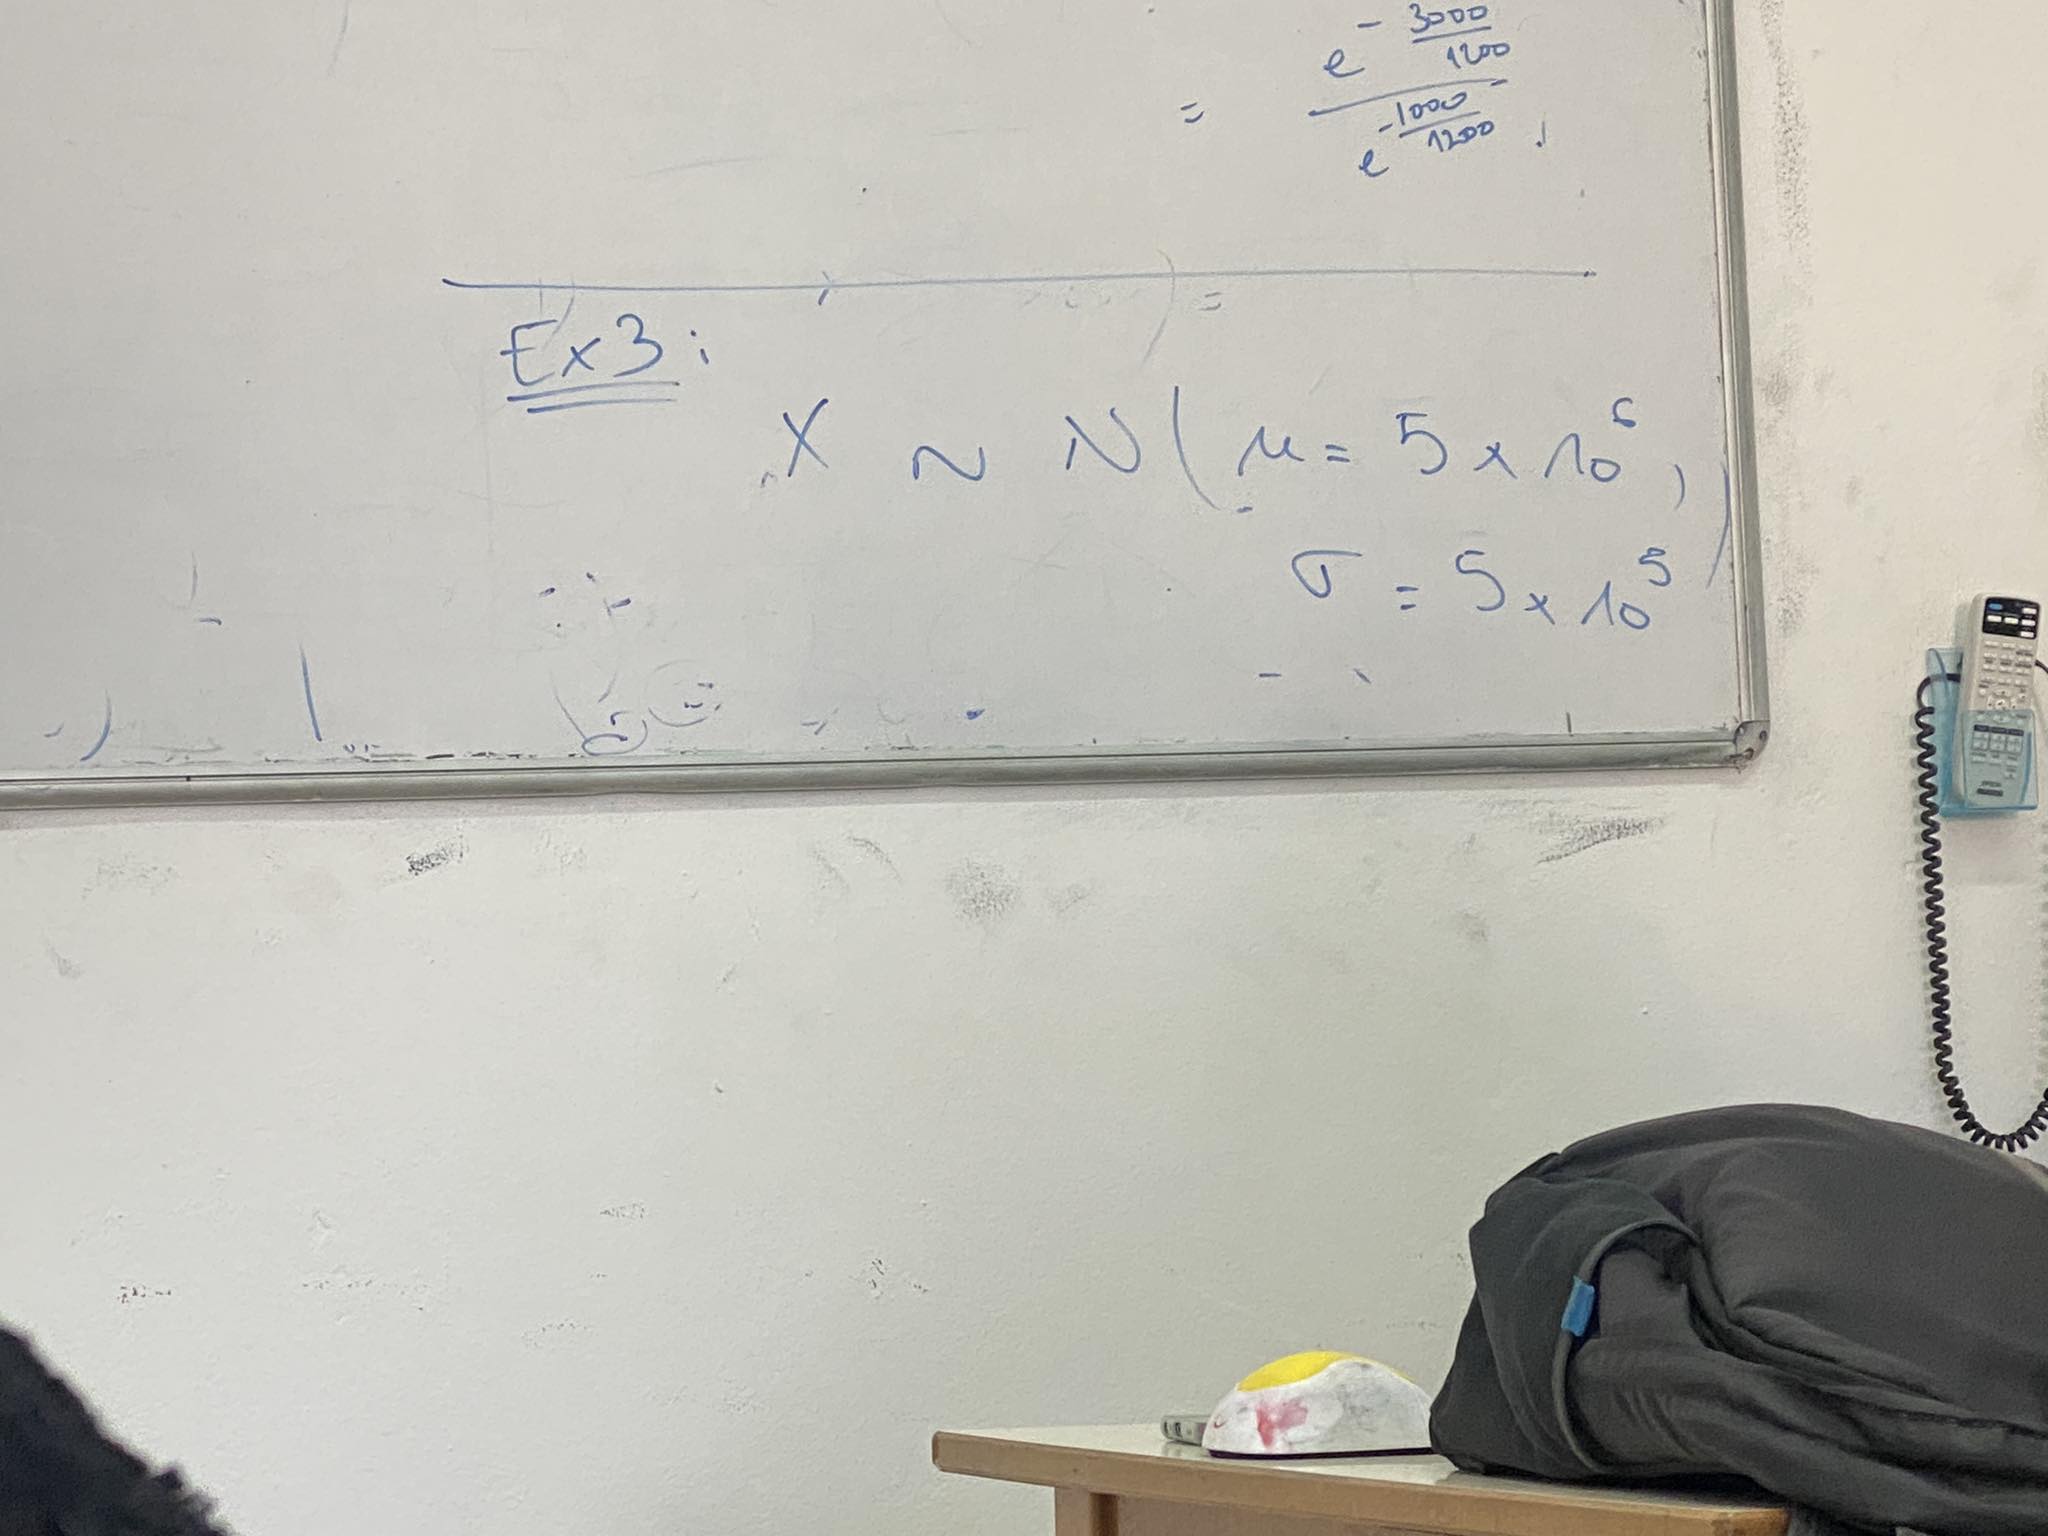 = e^{-3000/1200} / e^{-1000/1200} .
Ex3:
X ~ N( μ = 5 x 10^6 ,
σ = 5 x 10^5 )